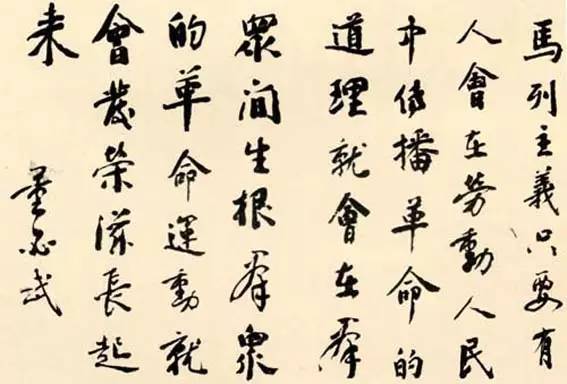 馬列主義只要有
人會在勞動人民
中傳播革命的
道理就會在羣
眾間生根羣眾
的革命運動就
會發榮滋長起
來
董必武